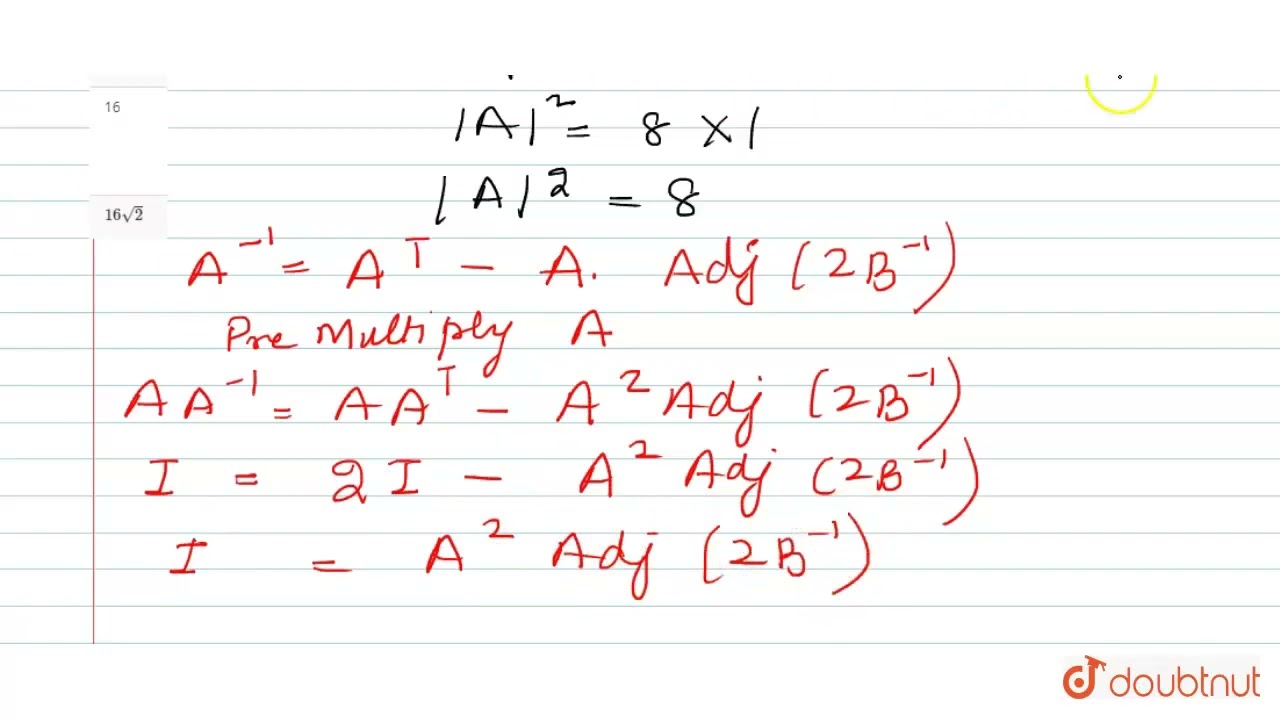 16
|A|² = 8 × 1
|A|² = 8
16√2
A⁻¹ = Aᵀ − A. Adj (2B⁻¹)
Pre Multiply A
AA⁻¹ = AAᵀ − A² Adj (2B⁻¹)
I = 2I − A² Adj (2B⁻¹)
I = A² Adj (2B⁻¹)
doubtnut